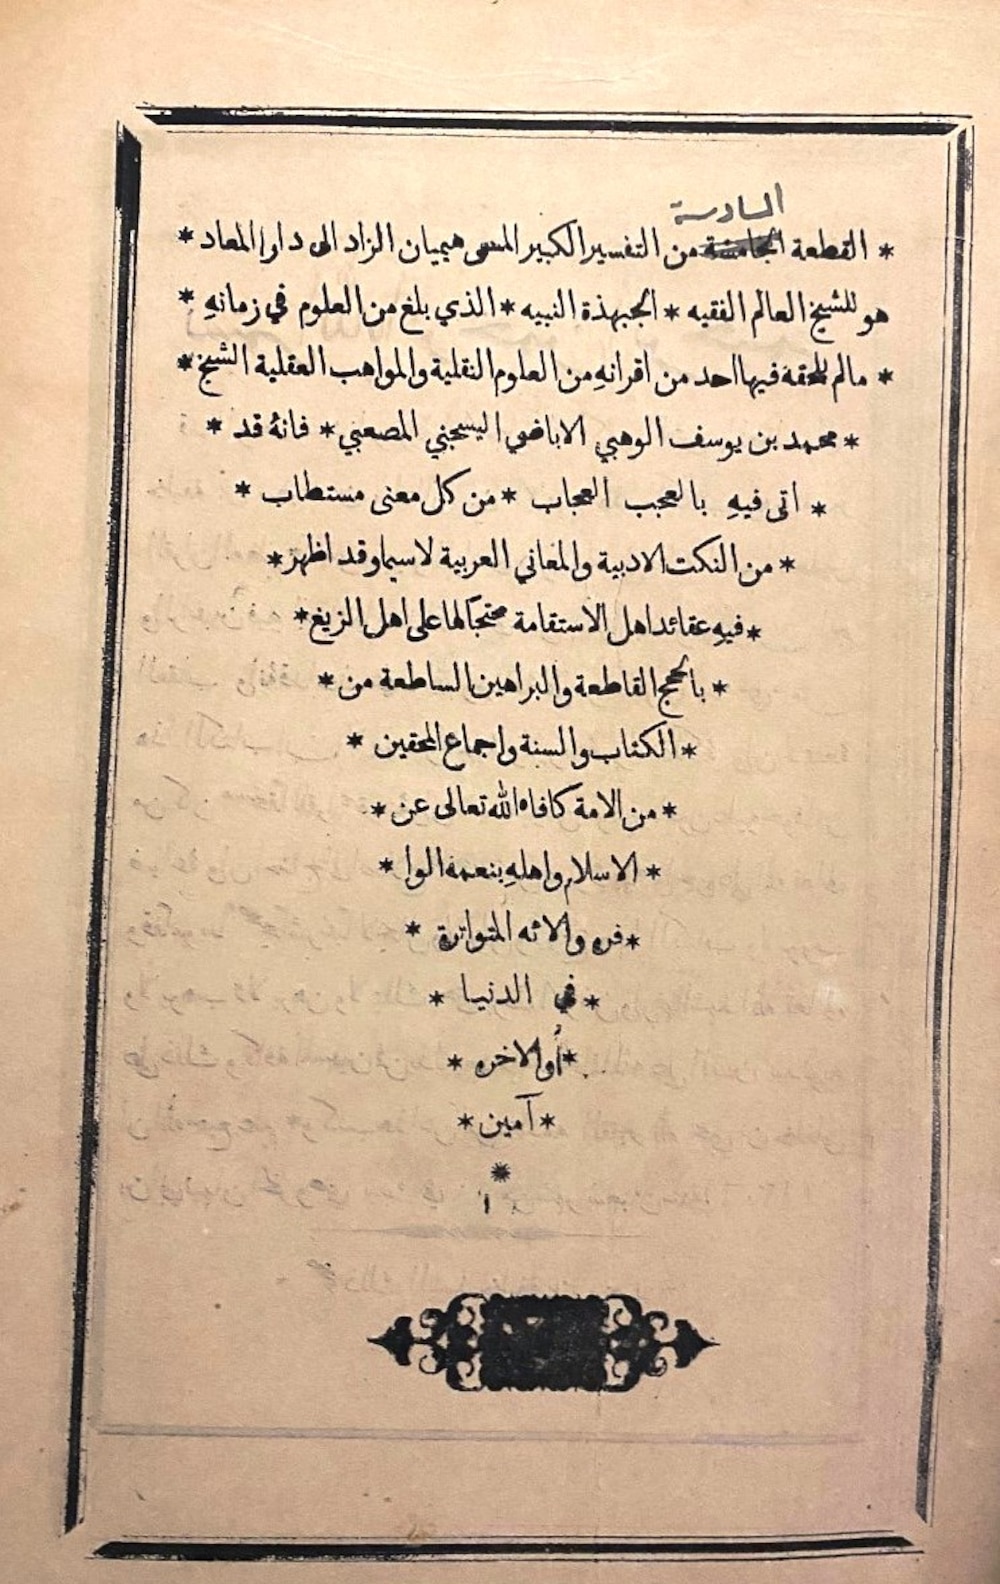 السادسة
* القطعة الخامسة من التفسير الكبير المسمى هيميان الزاد الى دار المعاد *
هو للشيخ العالم الفقيه * الجبهذة النبيه * الذي بلغ من العلوم في زمانهِ *
* مالم يلحقه فيها احد من اقرانهِ من العلوم النقلية والمواهب العقلية الشيخ *
* محمد بن يوسف الوهبي الاباضي اليسجني المصعبي * فانهُ قد *
* اتى فيهِ بالعجب العجاب * من كل معنى مستطاب *
* من النكت الادبية والمعاني العربية لاسيما وقد اظهر *
* فيهِ عقائد اهل الاستقامة محتجًا لها على اهل الزيغ *
* بالحجج القاطعة والبراهين الساطعة من *
* الكتاب والسنة واجماع المحقين *
* من الامة كافاه الله تعالى عن *
* الاسلام واهلهِ بنعمه الوا *
* فره والائه المتواترة *
* في الدنيا *
* والاخره *
* آمين *
*
١